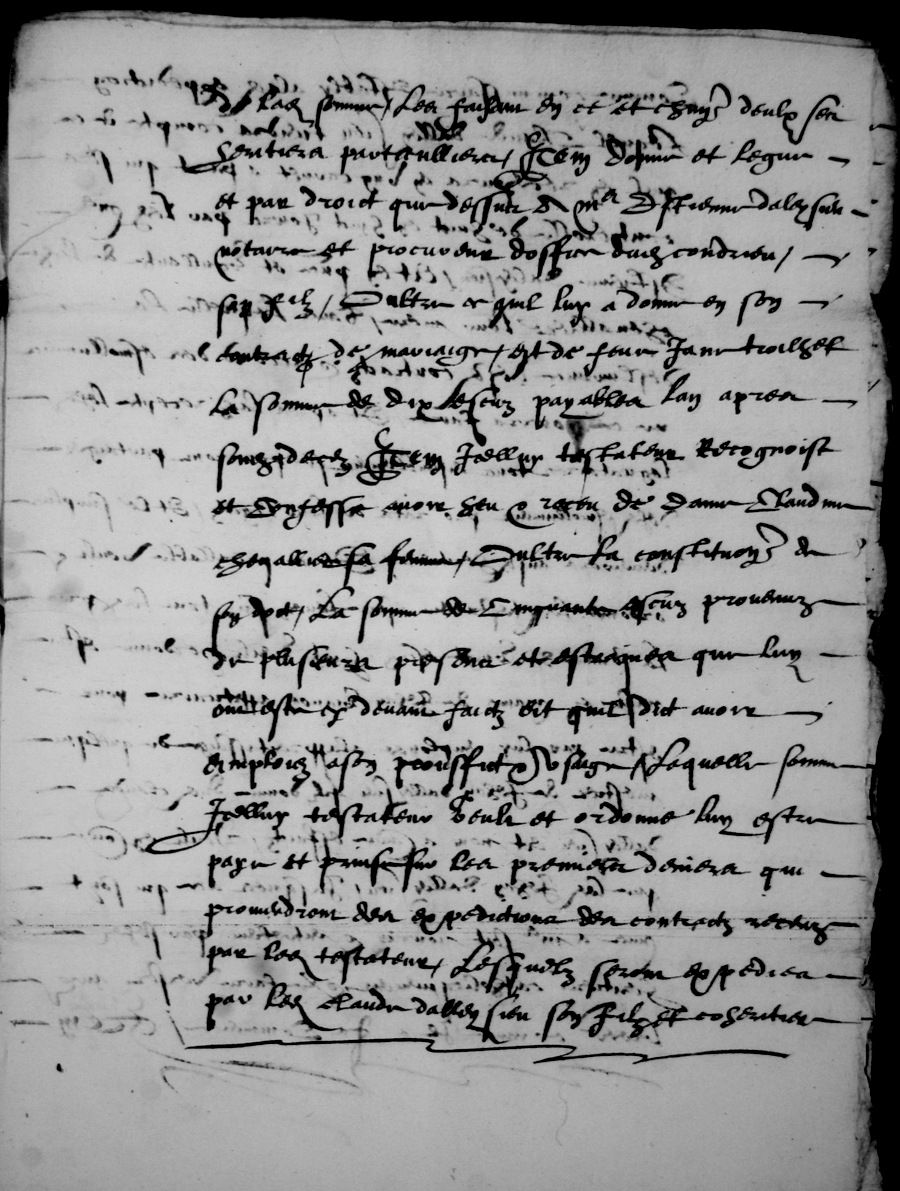 lad somme, Les faisant en ce et chacun deulx ses
heritiers particulliers, Item donne et legue
et par droict que dessus A me Estienne dalleysieu
notaire et procureur doffice dudit condrieu,
son filz, Oultre ce quil luy a donne en son
contract de mariaige, et de feue Jane
la somme de dix escuz payables lan apres
son deces Item Icelluy testateur Recognoist
et Confesse avoir heu et receu de dame Claudine
chevallier sa femme, Oultre la constitution de
son dot, La somme de Cinquante escuz provenuz
de plusieurs presens et estraynes que luy
ont este cy devant faictz dit quil dict avoir
employez a son prouffict et usaige, Laquelle somme
Icelluy testateur veult et ordonne luy estre
paye et prinse sur les premiers deniers qui
proviendront des expeditions des contractz receuz
par led testateur, Lesquelz seront expedies
par led Claude dalleysieu son filz et coheritier